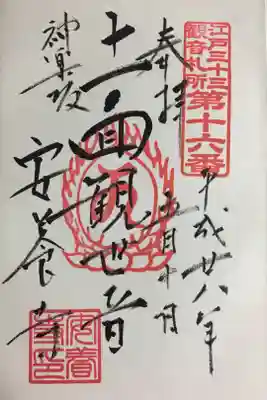 江戸三十三
観音札所
第十六番
奉拝
平成廿八年
五月十日
十一面観世音
神楽坂
安養寺